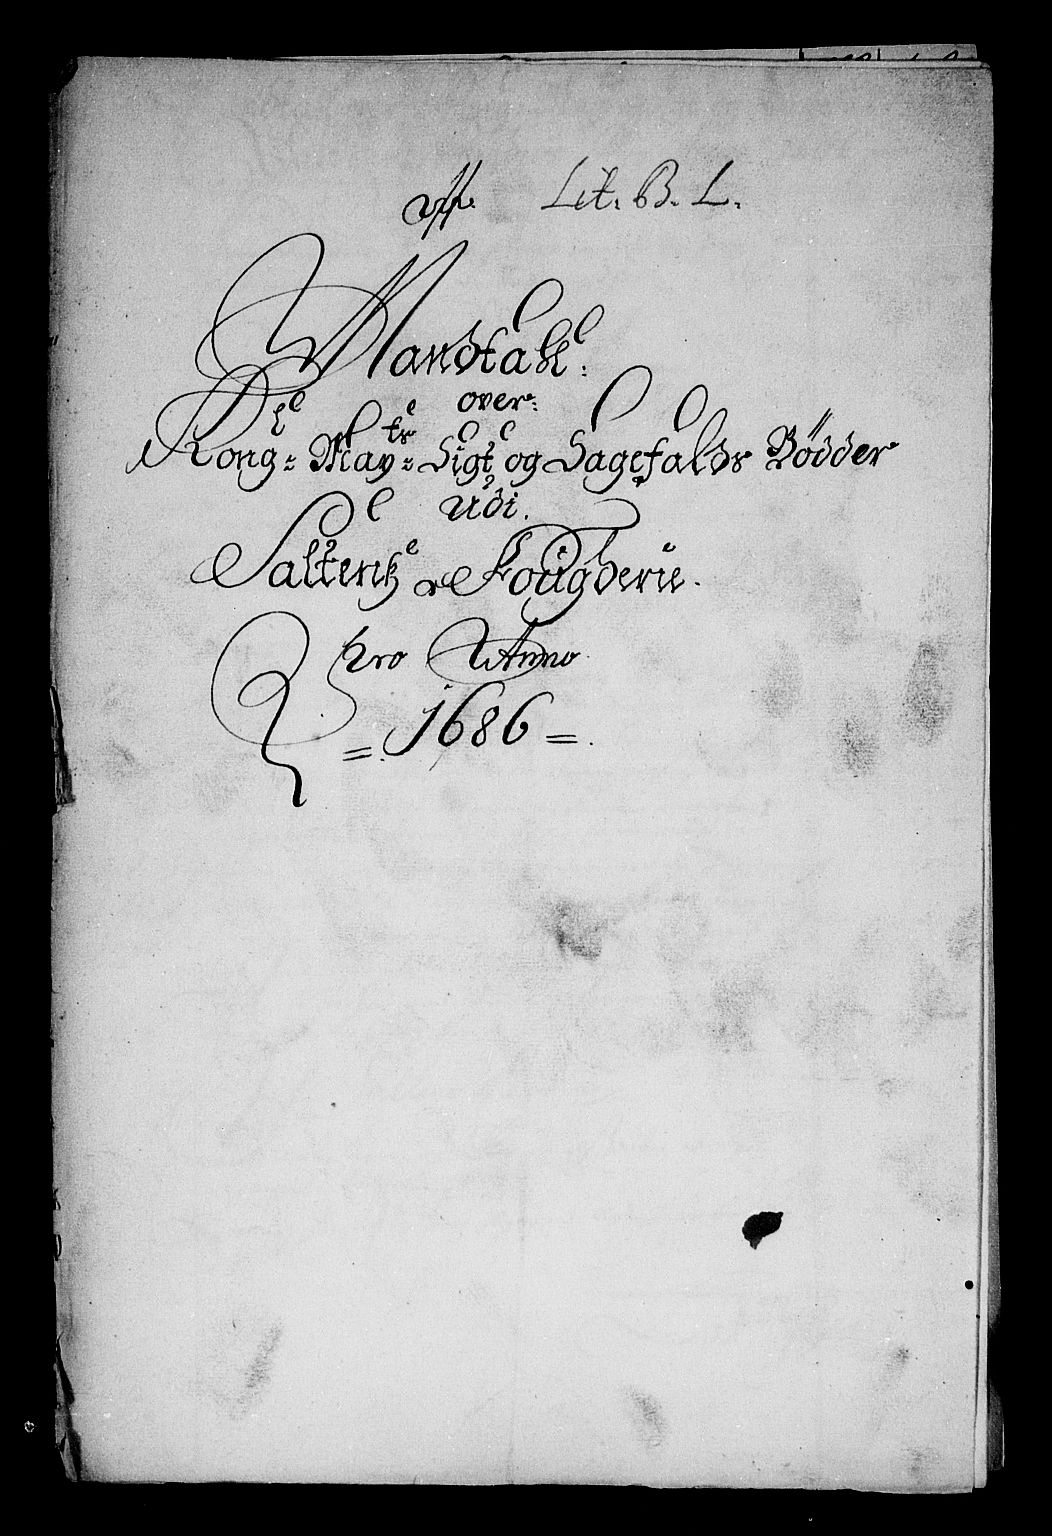 Lit. B. L.
Mandtall.
over
Kong: Mayts: Sigt og Sagefalds Bödder
Udi.
Saltens Fougderie.
Pro Anno
= 1686 =